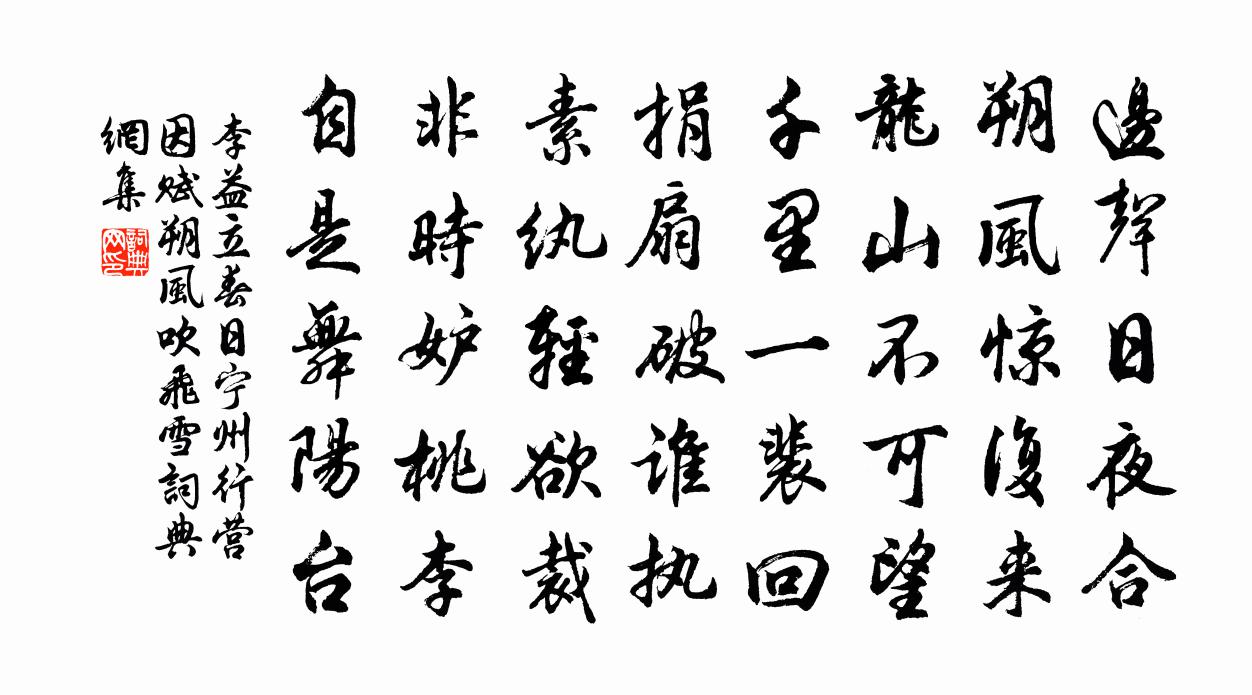 邊聲日夜合
朔風惊復来
龍山不可望
千里一裴回
捐扇破谁执
素纨輕欲裁
非時妒桃李
自是舞陽台
李益立春日宁州行营
因赋朔風吹飛雪詞典
網集
詞典网印